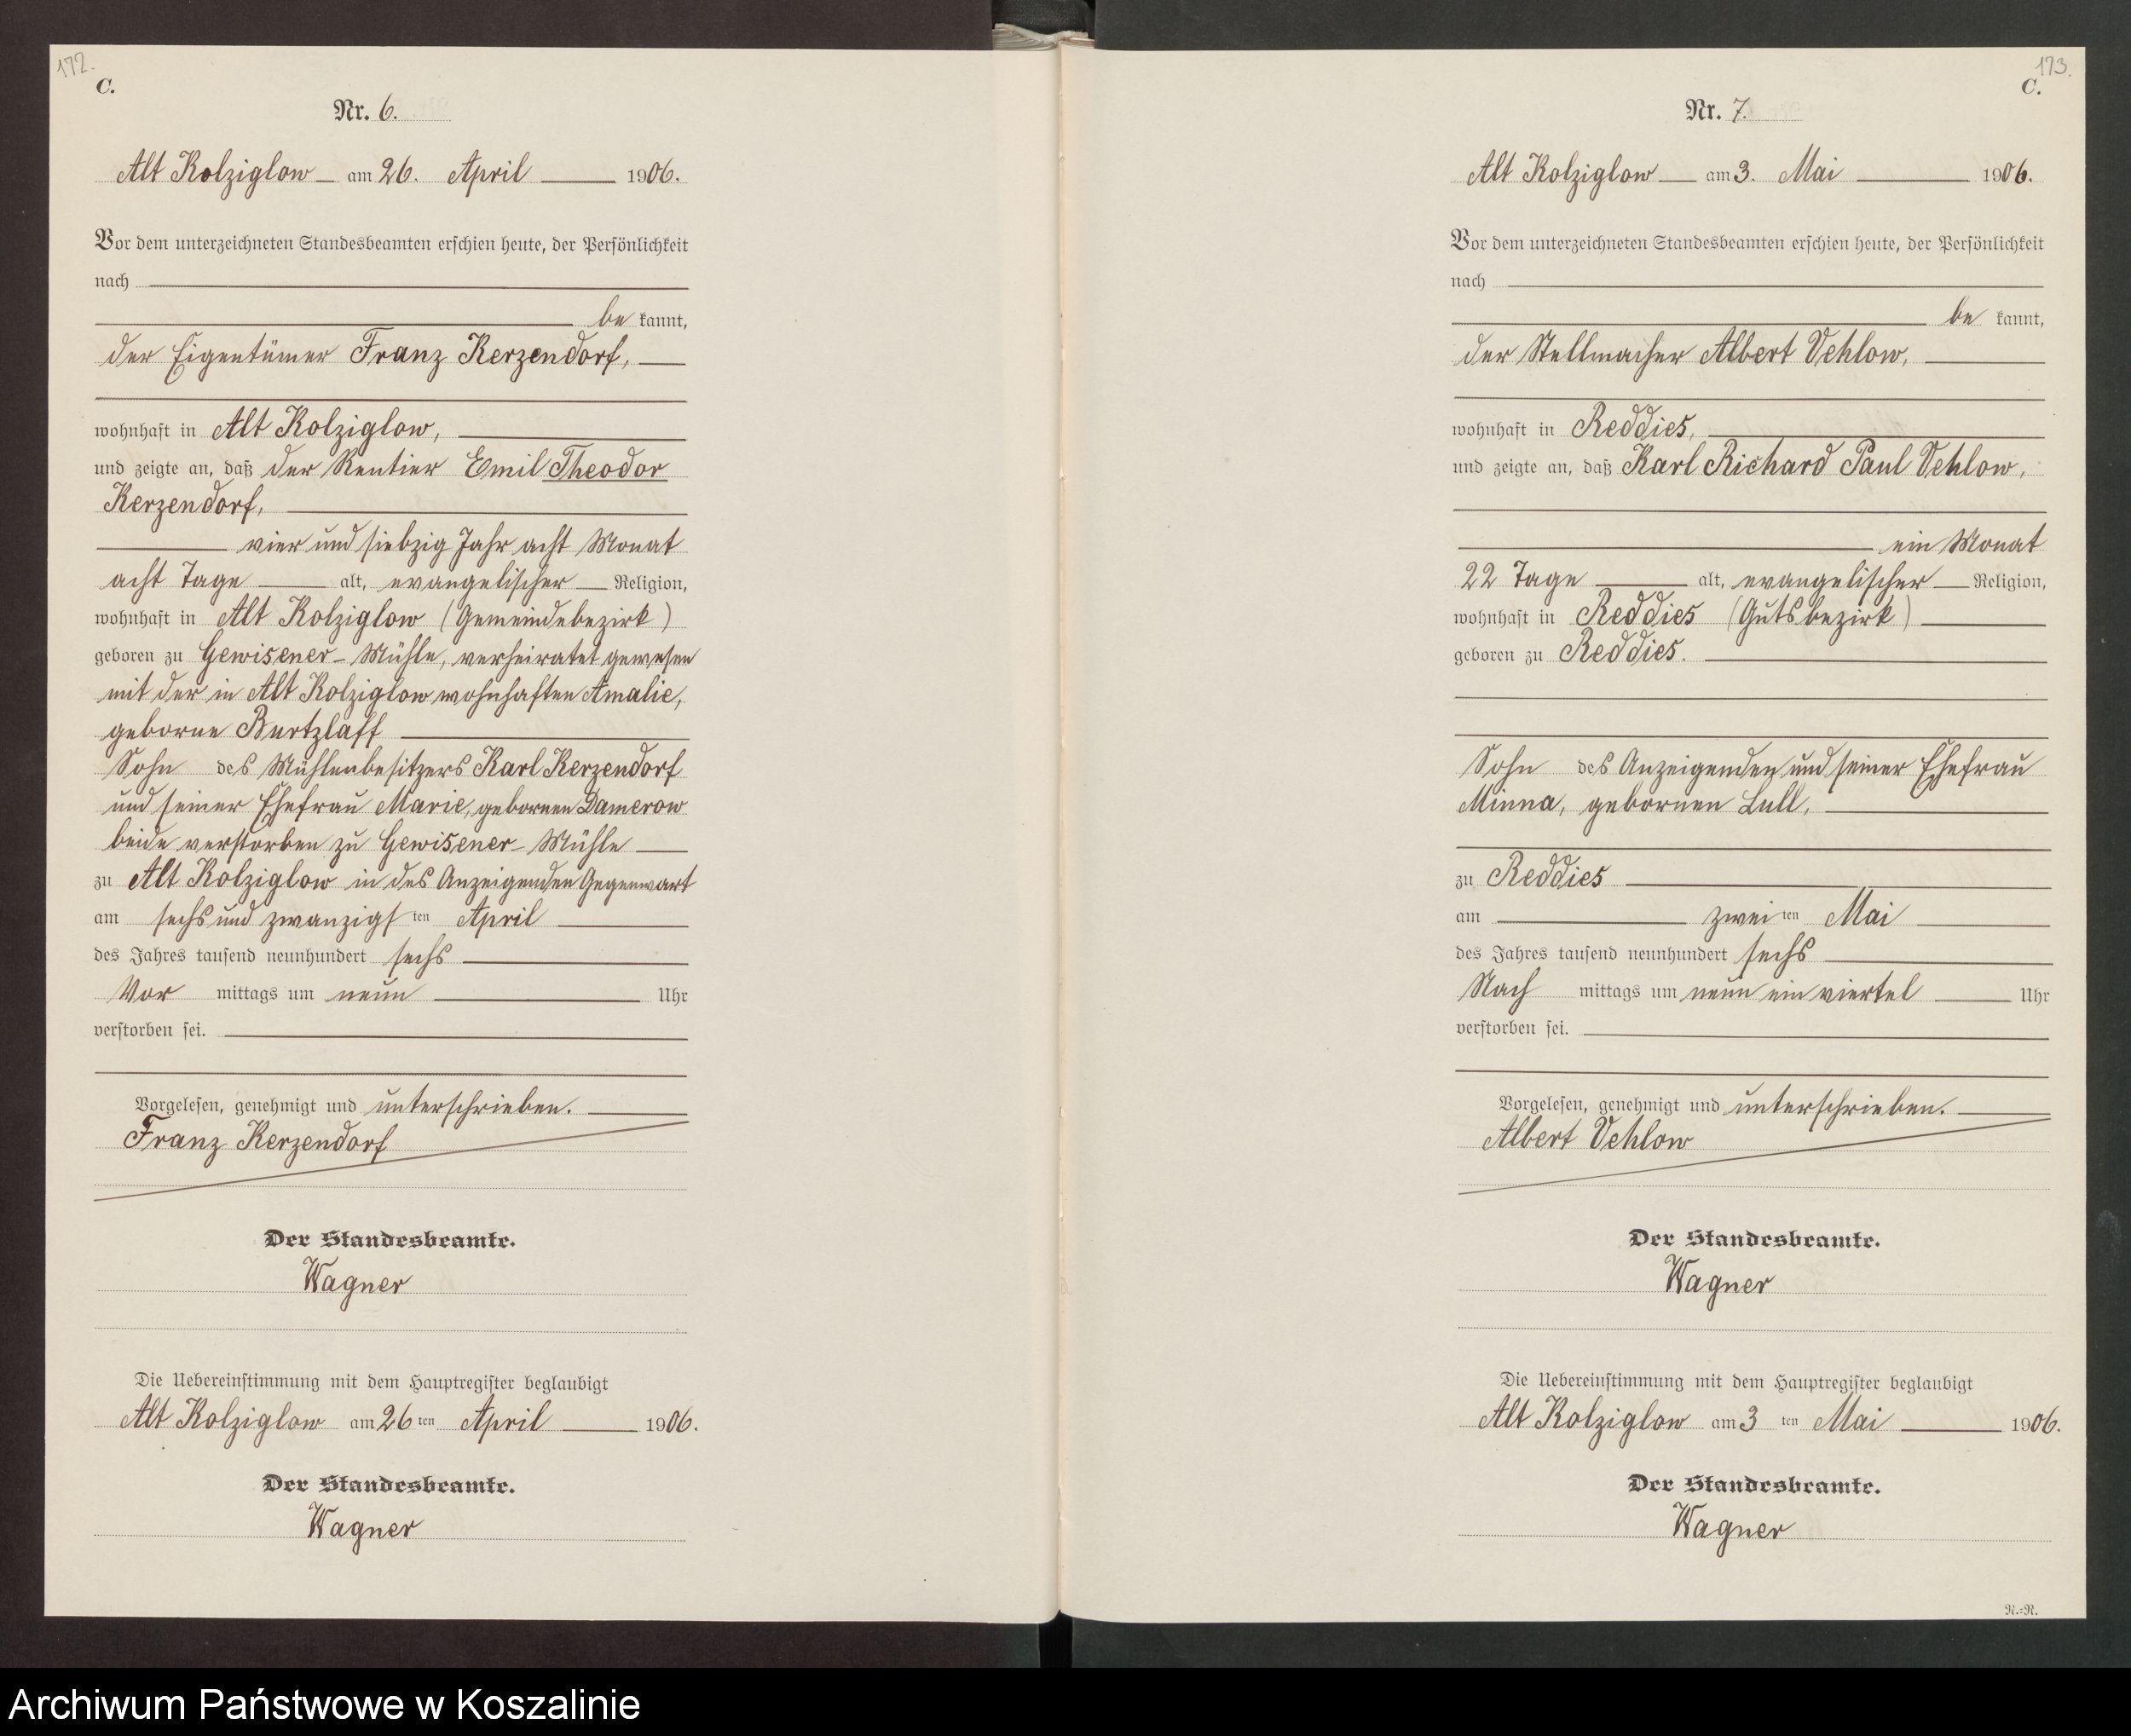 172.
C.
Nr. 6.
Alt Kolziglow am 26. April 1906.
Vor dem unterzeichneten Standesbeamten erschien heute, der Persönlichkeit
nach
be kannt,
der Eigentümer Franz Kerzendorf,
wohnhaft in Alt Kolziglow,
und zeigte an, daß der Rentier Emil Theodor
Kerzendorf,
vier und siebzig Jahr acht Monat
acht Tage alt, evangelischer Religion,
wohnhaft in Alt Kolziglow (Gemeindebezirk)
geboren zu Gewisener-Mühle, verheiratet gewesen
mit der in Alt Kolziglow wohnhaften Amalie,
geborne Burtzlaff
Sohn des Mühlenbesitzers Karl Kerzendorf
und seiner Ehefrau Marie, gebornen Damerow
beide verstorben zu Gewisener-Mühle
zu Alt Kolziglow in des Anzeigenden Gegenwart
am sechs und zwanzigsten April
des Jahres tausend neunhundert sechs
Vor mittags um neun Uhr
verstorben sei.
Vorgelesen, genehmigt und unterschrieben.
Franz Kerzendorf
Der Standesbeamte.
Wagner
Die Uebereinstimmung mit dem Hauptregister beglaubigt
Alt Kolziglow am 26 ten April 1906.
Der Standesbeamte.
Wagner
173.
C.
Nr. 7.
Alt Kolziglow am 3. Mai 1906.
Vor dem unterzeichneten Standesbeamten erschien heute, der Persönlichkeit
nach
be kannt,
der Stellmacher Albert Vehlow,
wohnhaft in Reddies,
und zeigte an, daß Karl Richard Paul Vehlow,
ein Monat
22 Tage alt, evangelischer Religion,
wohnhaft in Reddies (Gutsbezirk)
geboren zu Reddies.
Sohn des Anzeigenden und seiner Ehefrau
Minna, gebornen Lull,
zu Reddies
am zwei ten Mai
des Jahres tausend neunhundert sechs
Nach mittags um neun ein viertel Uhr
verstorben sei.
Vorgelesen, genehmigt und unterschrieben.
Albert Vehlow
Der Standesbeamte.
Wagner
Die Uebereinstimmung mit dem Hauptregister beglaubigt
Alt Kolziglow am 3 ten Mai 1906.
Der Standesbeamte.
Wagner
N.=N.
Archiwum Państwowe w Koszalinie